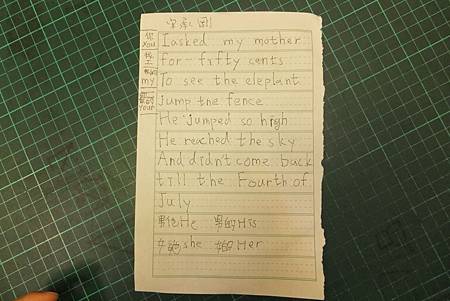 I asked my mother
for fifty cents
To see the eleplant
jump the fence
He jumped so high
He reached the sky
And didn't come back
till the Fourth of
July
男他 He 男的 His
女她 she 她的 Her
你
You
我
I
我的
my
你的
Your